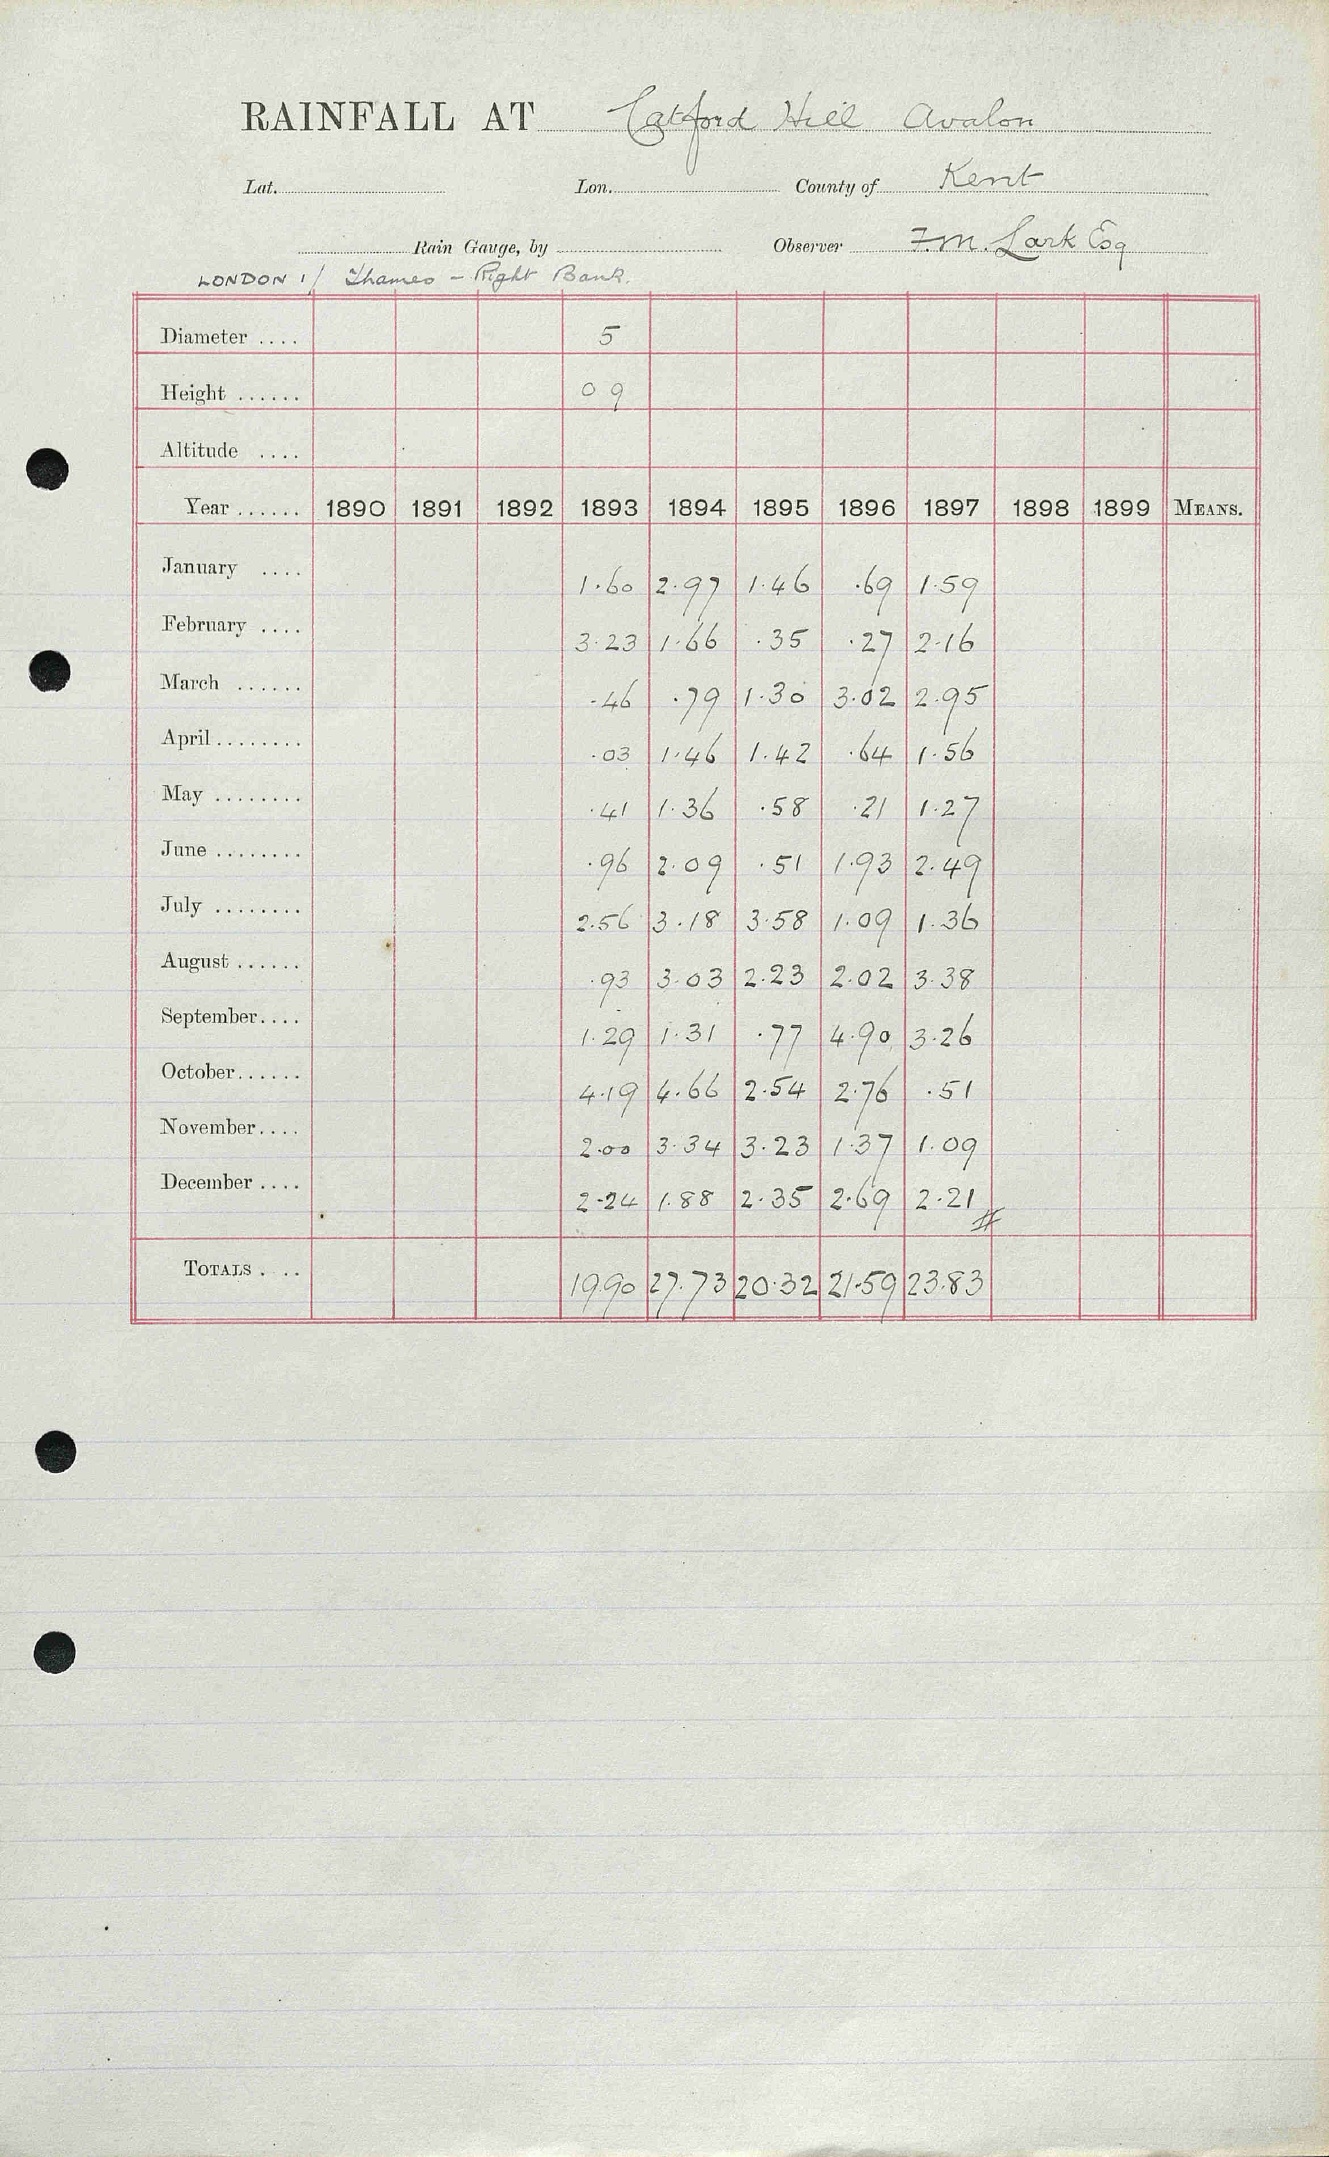 RAINFALL AT Catford Hill Avalon
Lat. Lon. County of Kent
Rain Gauge, by Observer F.M. Lark Esq
LONDON 1/ Thames - Right Bank.
Diameter .... 5
Height ...... 0 9
Altitude ....
Year ...... 1890 1891 1892 1893 1894 1895 1896 1897 1898 1899 MEANS.
January .... 1.60 2.97 1.46 .69 1.59
February .... 3.23 1.66 .35 .27 2.16
March ...... .46 .79 1.30 3.02 2.95
April ........ .03 1.46 1.42 .64 1.56
May ........ .41 1.36 .58 .21 1.27
June ........ .96 2.09 .51 1.93 2.49
July ........ 2.56 3.18 3.58 1.09 1.36
August ...... .93 3.03 2.23 2.02 3.38
September .... 1.29 1.31 .77 4.90 3.26
October ...... 4.19 4.66 2.54 2.76 .51
November .... 2.00 3.34 3.23 1.37 1.09
December .... 2.24 1.88 2.35 2.69 2.21 #
TOTALS . .. 19.90 27.73 20.32 21.59 23.83